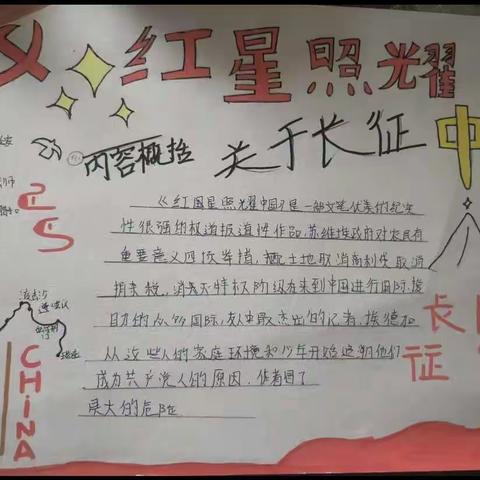 红星照耀
中
内容概括
关于长征
《红国星照耀中国》是一部文笔优美的纪实
性很强的报道报道性作品,苏维埃政府对农民有
重要意义四项举措,重配土地取消高利贷取消
捐杂税,消灭天特权阶级有来到中国进行国际援
助的众多国际友人中最杰出的记者,埃德加
从这些人的家庭环境和少年开始追朔他们
成为共产党人的原因,作者冒了
莫大的危险
长征
CHINA